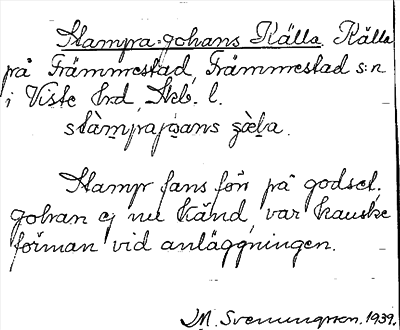 Stampra-Johans Källa. Källa
på Främmestad, Främmestad s:n
i Viste hrd, Skb. l.
stàmpajọans ʂæ̀ḷa.
Stamp fans förr på godset,
Johan ej nu känd, var kanske
förman vid anläggningen.
M. Svenungsson. 1939.